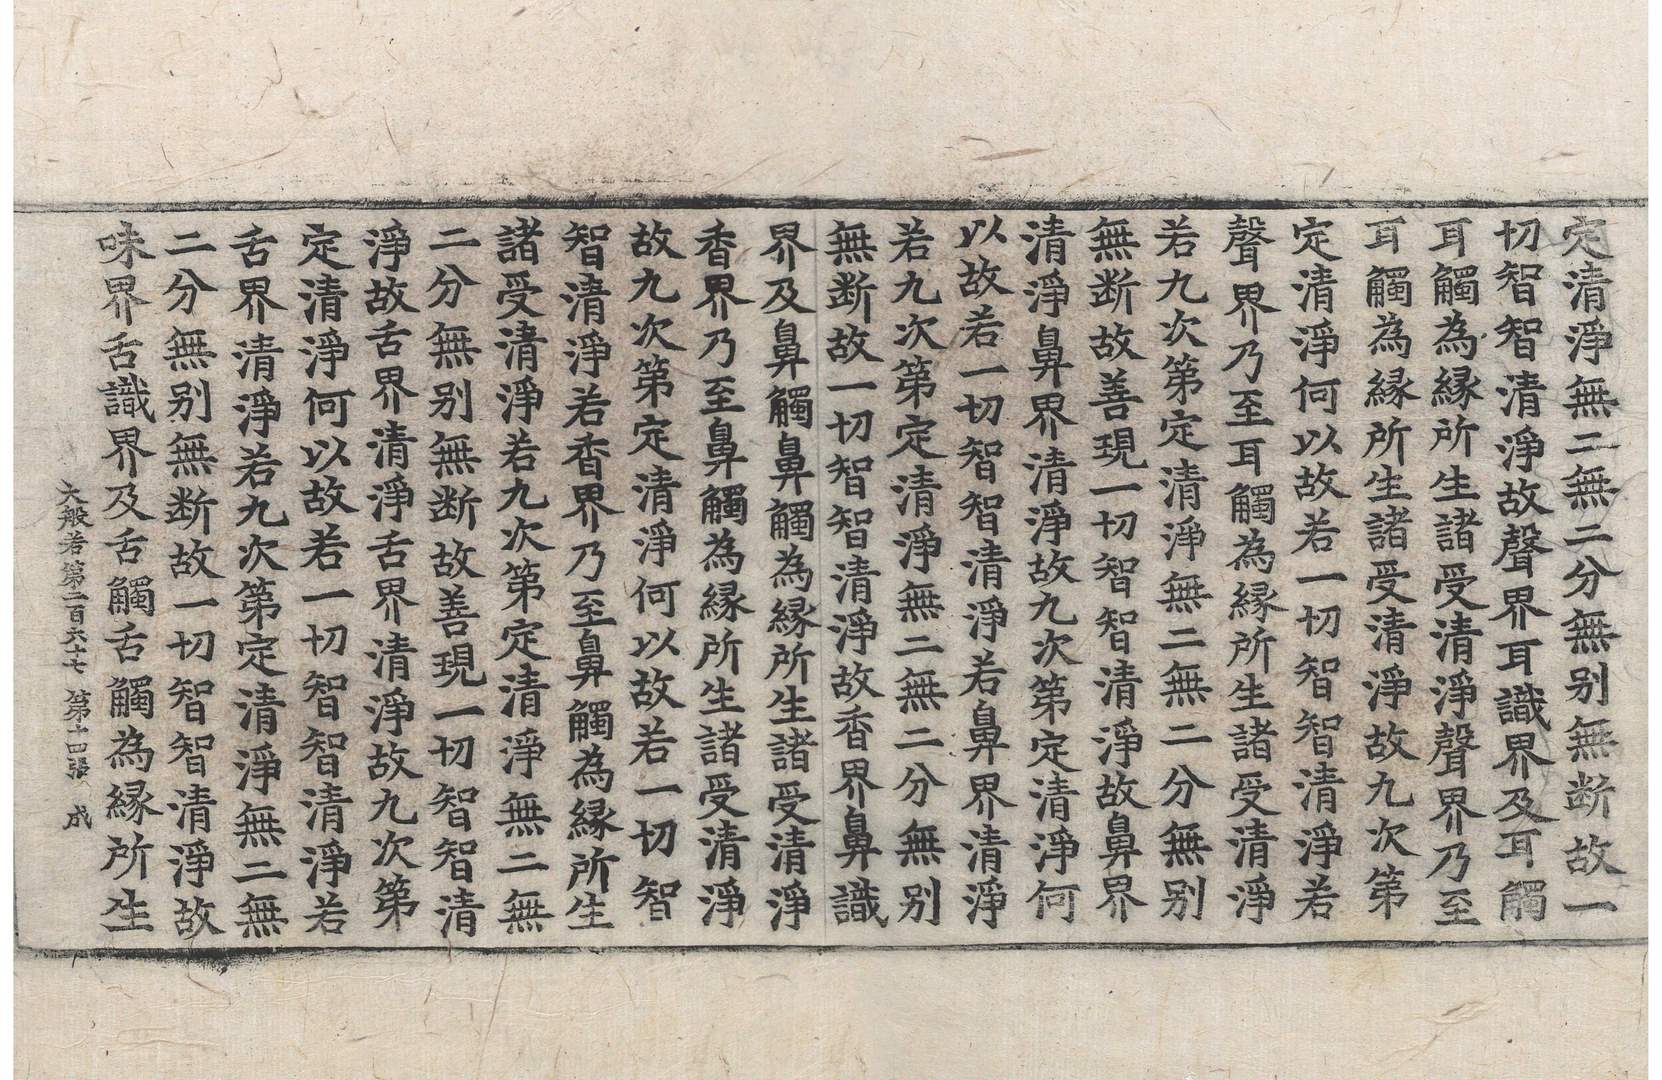 定清淨無二無二分無别無断故一
切智智清淨故聲界耳識界及耳觸
耳觸為縁所生諸受清淨聲界乃至
耳觸為縁所生諸受清淨故九次第
定清淨何以故若一切智智清淨若
聲界乃至耳觸為縁所生諸受清淨
若九次第定清淨無二無二分無别
無断故善現一切智智清淨故鼻界
清淨鼻界清淨故九次第定清淨何
以故若一切智智清淨若鼻界清淨
若九次第定清淨無二無二分無别
無断故一切智智清淨故香界鼻識
界及鼻觸鼻觸為縁所生諸受清淨
香界乃至鼻觸為縁所生諸受清淨
故九次第定清淨何以故若一切智
智清淨若香界乃至鼻觸為縁所生
諸受清淨若九次第定清淨無二無
二分無别無断故善現一切智智清
淨故舌界清淨舌界清淨故九次第
定清淨何以故若一切智智清淨若
舌界清淨若九次第定清淨無二無
二分無别無断故一切智智清淨故
味界舌識界及舌觸舌觸為縁所生
大般若第二百六十七 第十四張 成